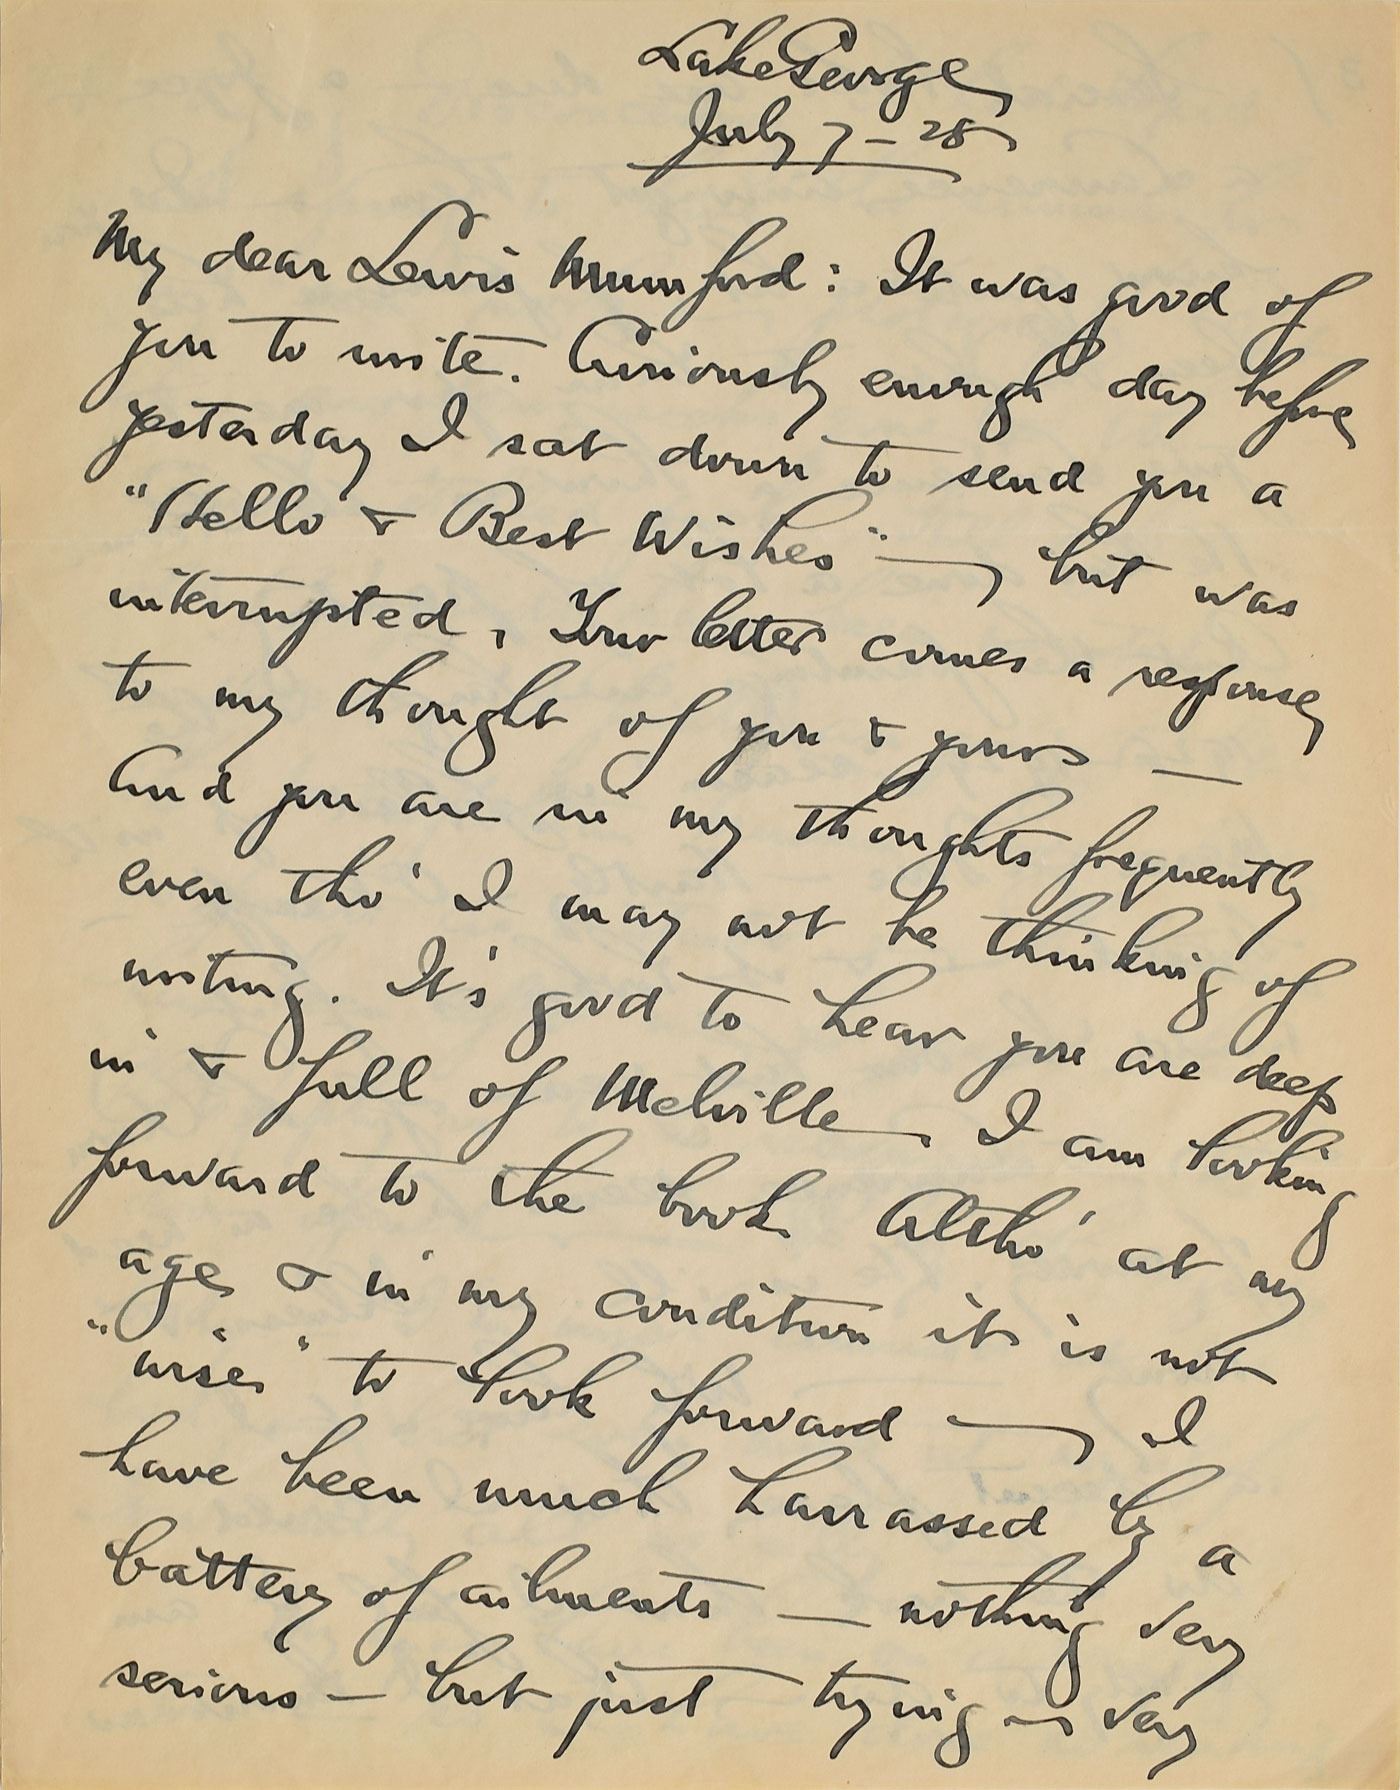 Lake George
July 7 – 28
My dear Lewis Mumford: It was good of
you to write. Curiously enough day before
yesterday I sat down to send you a
"Hello & Best Wishes" — but was
interrupted. Your letter comes a response
to my thought of you & yours —
And you are in my thoughts frequently
even tho' I may not be thinking of
writing. It's good to hear you are deep
in & full of Melville. I am looking
forward to the book Altho' at my
age & in my condition it is not
"wise" to look forward — I
have been much harrassed by a
battery of ailments — nothing very
serious — but just trying — very